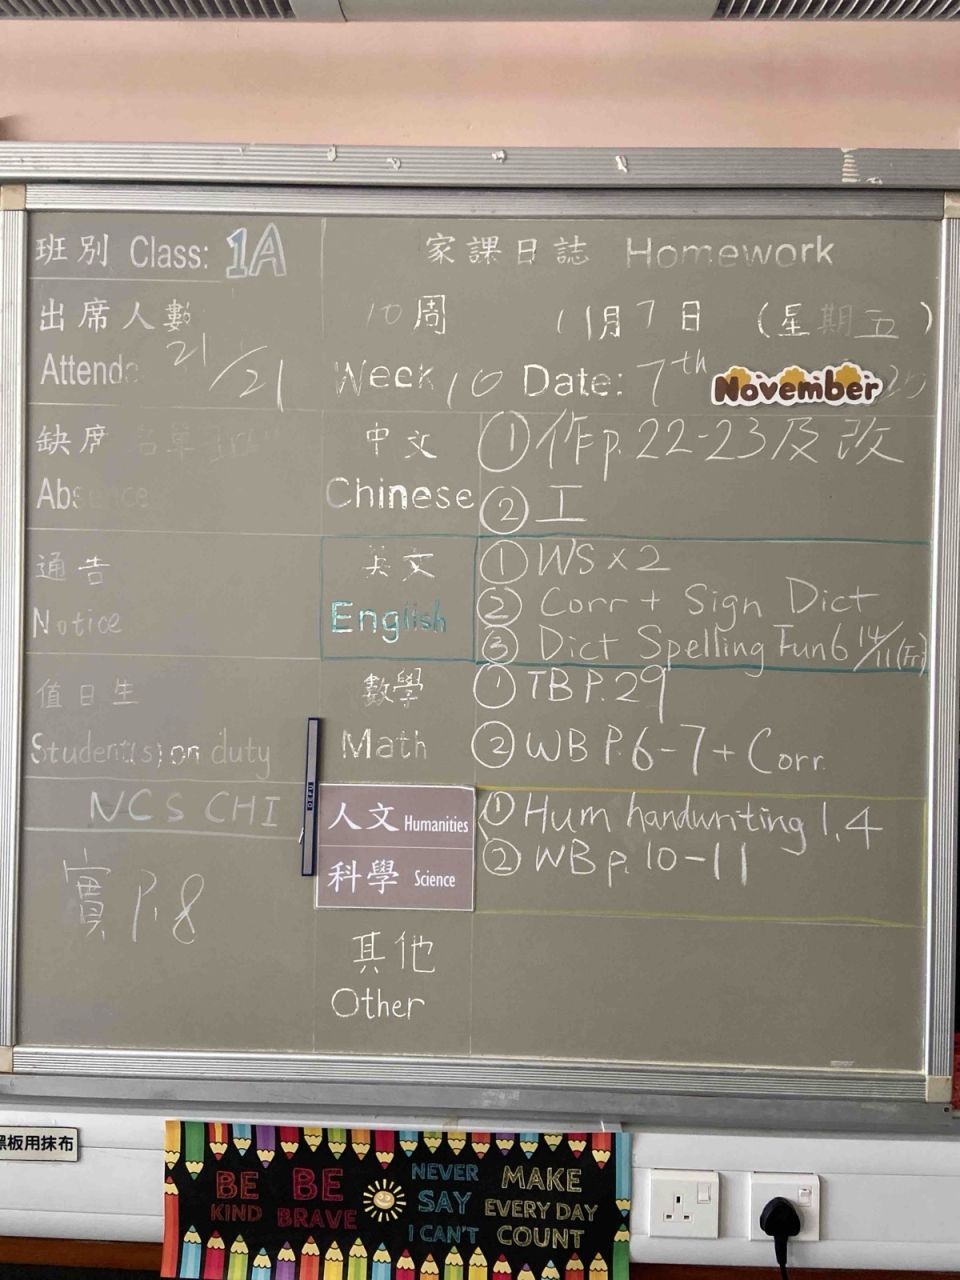 班別 Class: 1A
家課日誌 Homework
出席人數
21/21
Attenda
10周 11月7日 (星期五)
Week 10 Date: 7th November
缺席
Absence
中文
Chinese
① 作p.22-23及改
② 工
通告
Notice
英文
English
① WS x 2
② Corr + Sign Dict
③ Dict Spelling Fun6 14/11(Fri)
值日生
Student(s) on duty
數學
Math
① TB P.29
② WB P.6-7 + Corr.
NCS CHI
實 P.8
人文 Humanities
科學 Science
① Hum handwriting 1,4
② WB p.10-11
其他
Other
黑板用抹布
BE KIND
BE BRAVE
NEVER SAY I CAN'T
MAKE EVERY DAY COUNT